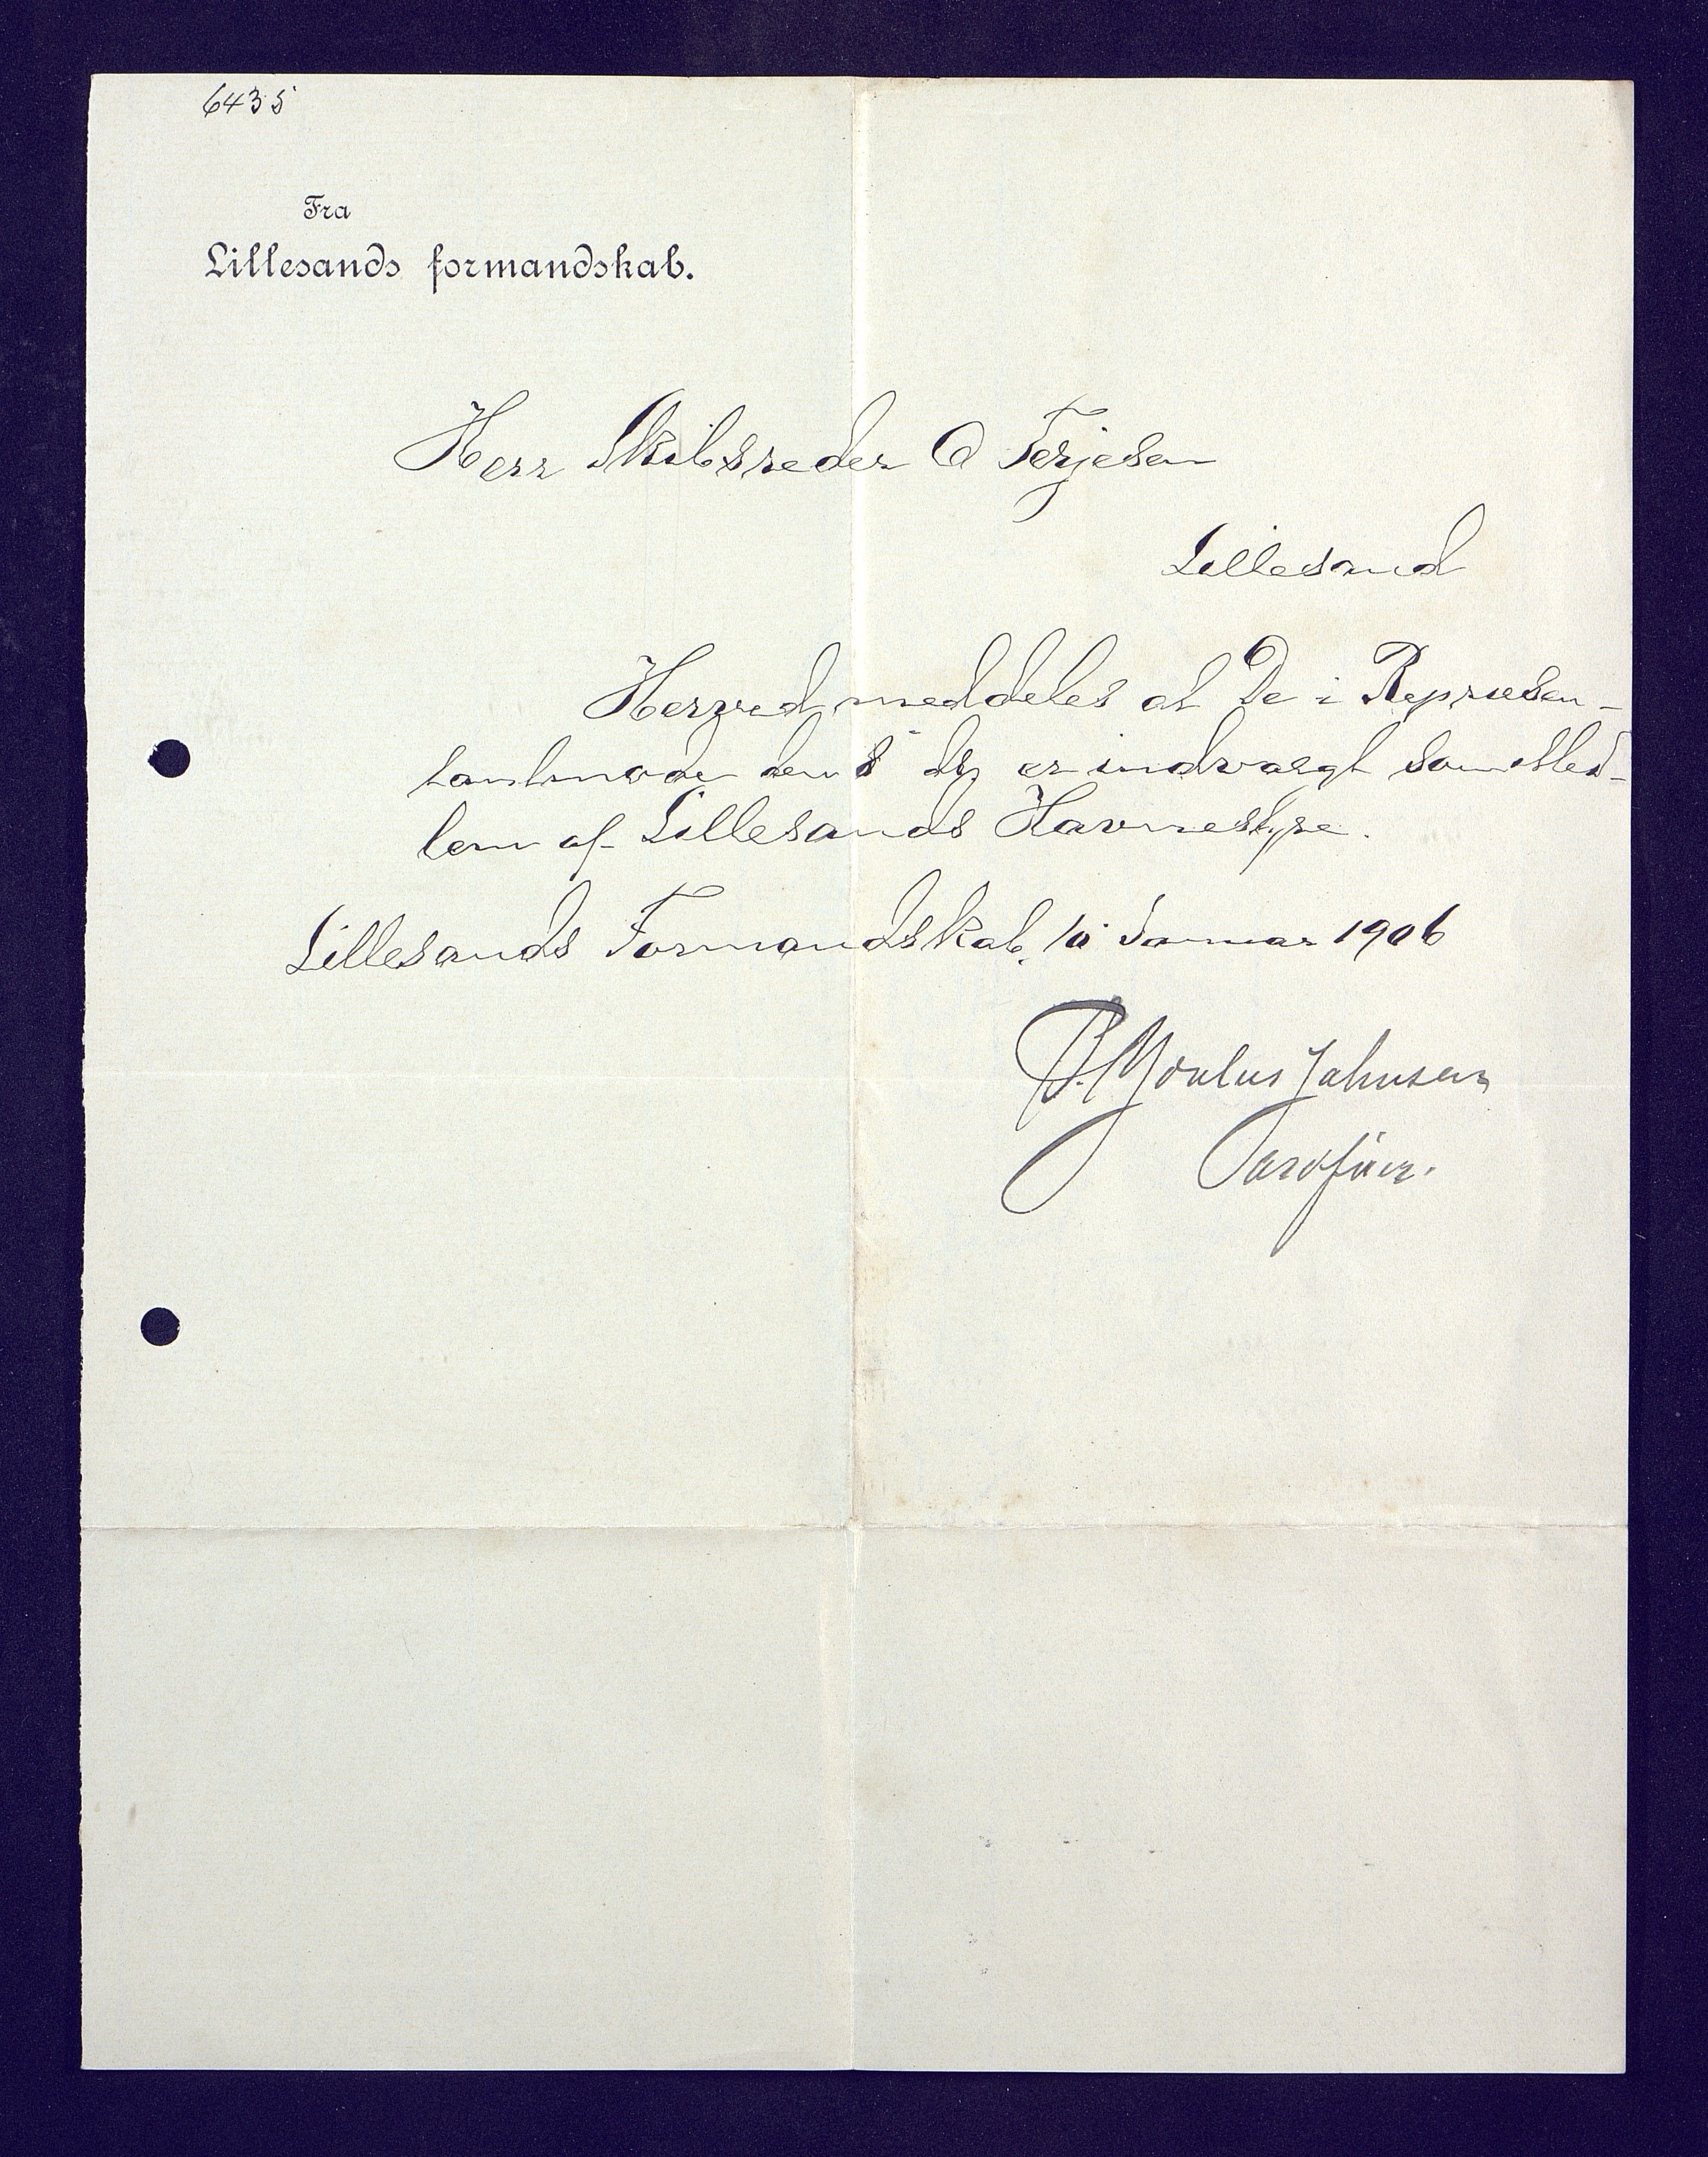 6435
Fra
Lillesands formandskab.
Herr Skibsreder O Terjesen
Lillesand
Herved meddeles at De i Repræsen-
tantmøde den 8' ds er indvalgt som Med-
lem af Lillesands Havnestyre.
Lillesands Formandskab, 10' Januar 1906
Johnsen